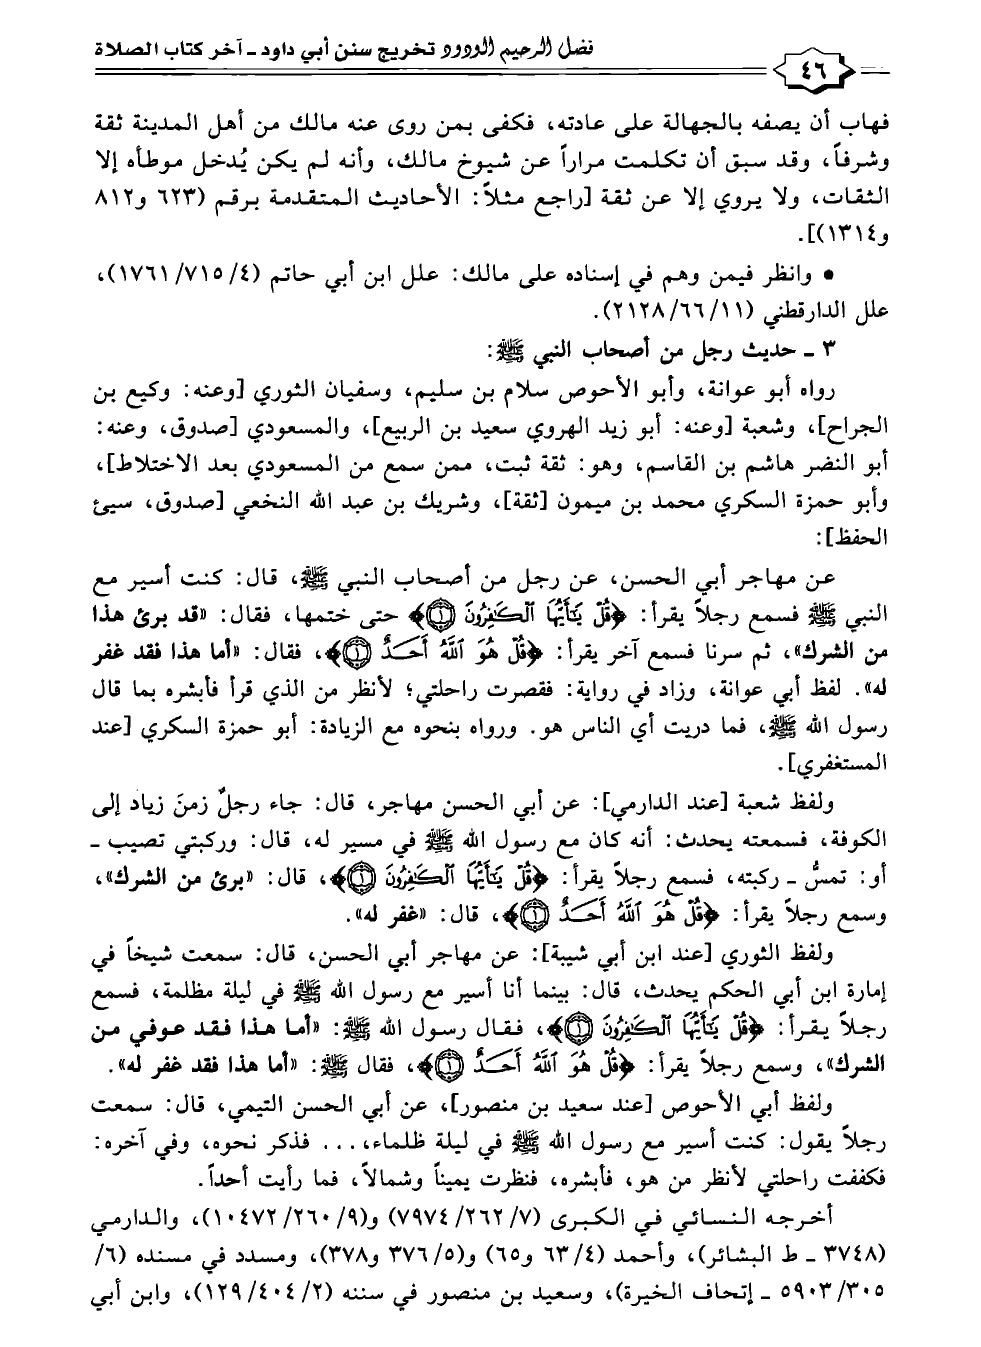 فضل الرحيم الودود تخريج سنن أبي داود - آخر كتاب الصلاة
٤٦
فهاب أن يصفه بالجهالة على عادته، فكفى بمن روى عنه مالك من أهل المدينة ثقة
وشرفاً، وقد سبق أن تكلمت مراراً عن شيوخ مالك، وأنه لم يكن يُدخل موطأه إلا
الثقات، ولا يروي إلا عن ثقة [راجع مثلاً: الأحاديث المتقدمة برقم (٦٢٣ و٨١٢
و١٣١٤)].
• وانظر فيمن وهم في إسناده على مالك: علل ابن أبي حاتم (٤/ ٧١٥/ ١٧٦١)،
علل الدارقطني (١١/ ٦٦/ ٢١٢٨).
٣ - حديث رجل من أصحاب النبي ﷺ:
رواه أبو عوانة، وأبو الأحوص سلام بن سليم، وسفيان الثوري [وعنه: وكيع بن
الجراح]، وشعبة [وعنه: أبو زيد الهروي سعيد بن الربيع]، والمسعودي [صدوق، وعنه:
أبو النضر هاشم بن القاسم، وهو: ثقة ثبت، ممن سمع من المسعودي بعد الاختلاط]،
وأبو حمزة السكري محمد بن ميمون [ثقة]، وشريك بن عبد الله النخعي [صدوق، سيئ
الحفظ]:
عن مهاجر أبي الحسن، عن رجل من أصحاب النبي ﷺ، قال: كنت أسير مع
النبي ﷺ فسمع رجلاً يقرأ: ﴿قُلْ يَٰٓأَيُّهَا ٱلْكَٰفِرُونَ ۝١﴾ حتى ختمها، فقال: «قد برئ هذا
من الشرك»، ثم سرنا فسمع آخر يقرأ: ﴿قُلْ هُوَ ٱللَّهُ أَحَدٌ ۝١﴾، فقال: «أما هذا فقد غفر
له». لفظ أبي عوانة، وزاد في رواية: فقصرت راحلتي؛ لأنظر من الذي قرأ فأبشره بما قال
رسول الله ﷺ، فما دريت أي الناس هو. ورواه بنحوه مع الزيادة: أبو حمزة السكري [عند
المستغفري].
ولفظ شعبة [عند الدارمي]: عن أبي الحسن مهاجر، قال: جاء رجلٌ زمنَ زياد إلى
الكوفة، فسمعته يحدث: أنه كان مع رسول الله ﷺ في مسير له، قال: وركبتي تصيب -
أو: تمسُّ - ركبته، فسمع رجلاً يقرأ: ﴿قُلْ يَٰٓأَيُّهَا ٱلْكَٰفِرُونَ ۝١﴾، قال: «برئ من الشرك»،
وسمع رجلاً يقرأ: ﴿قُلْ هُوَ ٱللَّهُ أَحَدٌ ۝١﴾، قال: «غفر له».
ولفظ الثوري [عند ابن أبي شيبة]: عن مهاجر أبي الحسن، قال: سمعت شيخاً في
إمارة ابن أبي الحكم يحدث، قال: بينما أنا أسير مع رسول الله ﷺ في ليلة مظلمة، فسمع
رجلاً يقرأ: ﴿قُلْ يَٰٓأَيُّهَا ٱلْكَٰفِرُونَ ۝١﴾، فقال رسول الله ﷺ: «أما هذا فقد عوفي من
الشرك»، وسمع رجلاً يقرأ: ﴿قُلْ هُوَ ٱللَّهُ أَحَدٌ ۝١﴾، فقال ﷺ: «أما هذا فقد غفر له».
ولفظ أبي الأحوص [عند سعيد بن منصور]، عن أبي الحسن التيمي، قال: سمعت
رجلاً يقول: كنت أسير مع رسول الله ﷺ في ليلة ظلماء،... فذكر نحوه، وفي آخره:
فكففت راحلتي لأنظر من هو، فأبشره، فنظرت يميناً وشمالاً، فما رأيت أحداً.
أخرجه النسائي في الكبرى (٧/ ٢٦٢/ ٧٩٧٤) و(٩/ ٢٦٠/ ١٠٤٧٢)، والدارمي
(٣٧٤٨ - ط البشائر)، وأحمد (٤/ ٦٣ و٦٥) و(٥/ ٣٧٦ و٣٧٨)، ومسدد في مسنده (٦/
٣٠٥/ ٥٩٠٣ - إتحاف الخيرة)، وسعيد بن منصور في سننه (٢/ ٤٠٤/ ١٢٩)، وابن أبي